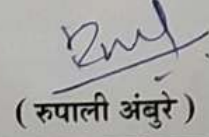 ( रुपाली अंबुरे )